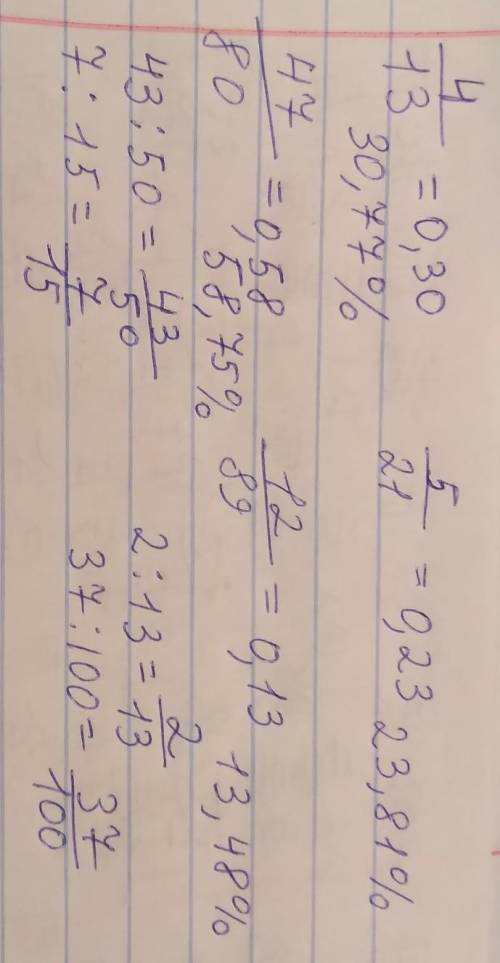 4/13 = 0,30    5/21 = 0,23  23,81%
30,77%
47/80 = 0,58    12/89 = 0,13  13,48%
58,75%
43:50 = 43/50    2:13 = 2/13
7:15 = 7/15    37:100 = 37/100